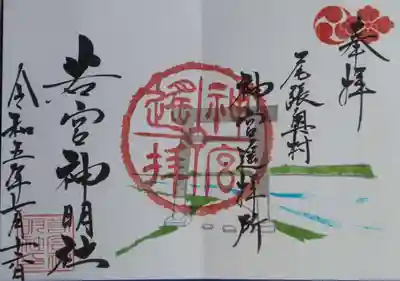 奉拝
尾張奥村
神宮遥拝所
神宮遥拝
若宮神明社
令和五年十一月十六日